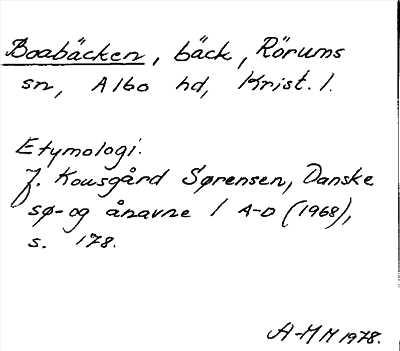 Boabäcken, bäck, Rörums
sn, Albo hd, Krist. l.
Etymologi:
J. Kousgård Sørensen, Danske
sø- og ånavne 1 A-D (1968),
s. 178.
A-MH 1978.